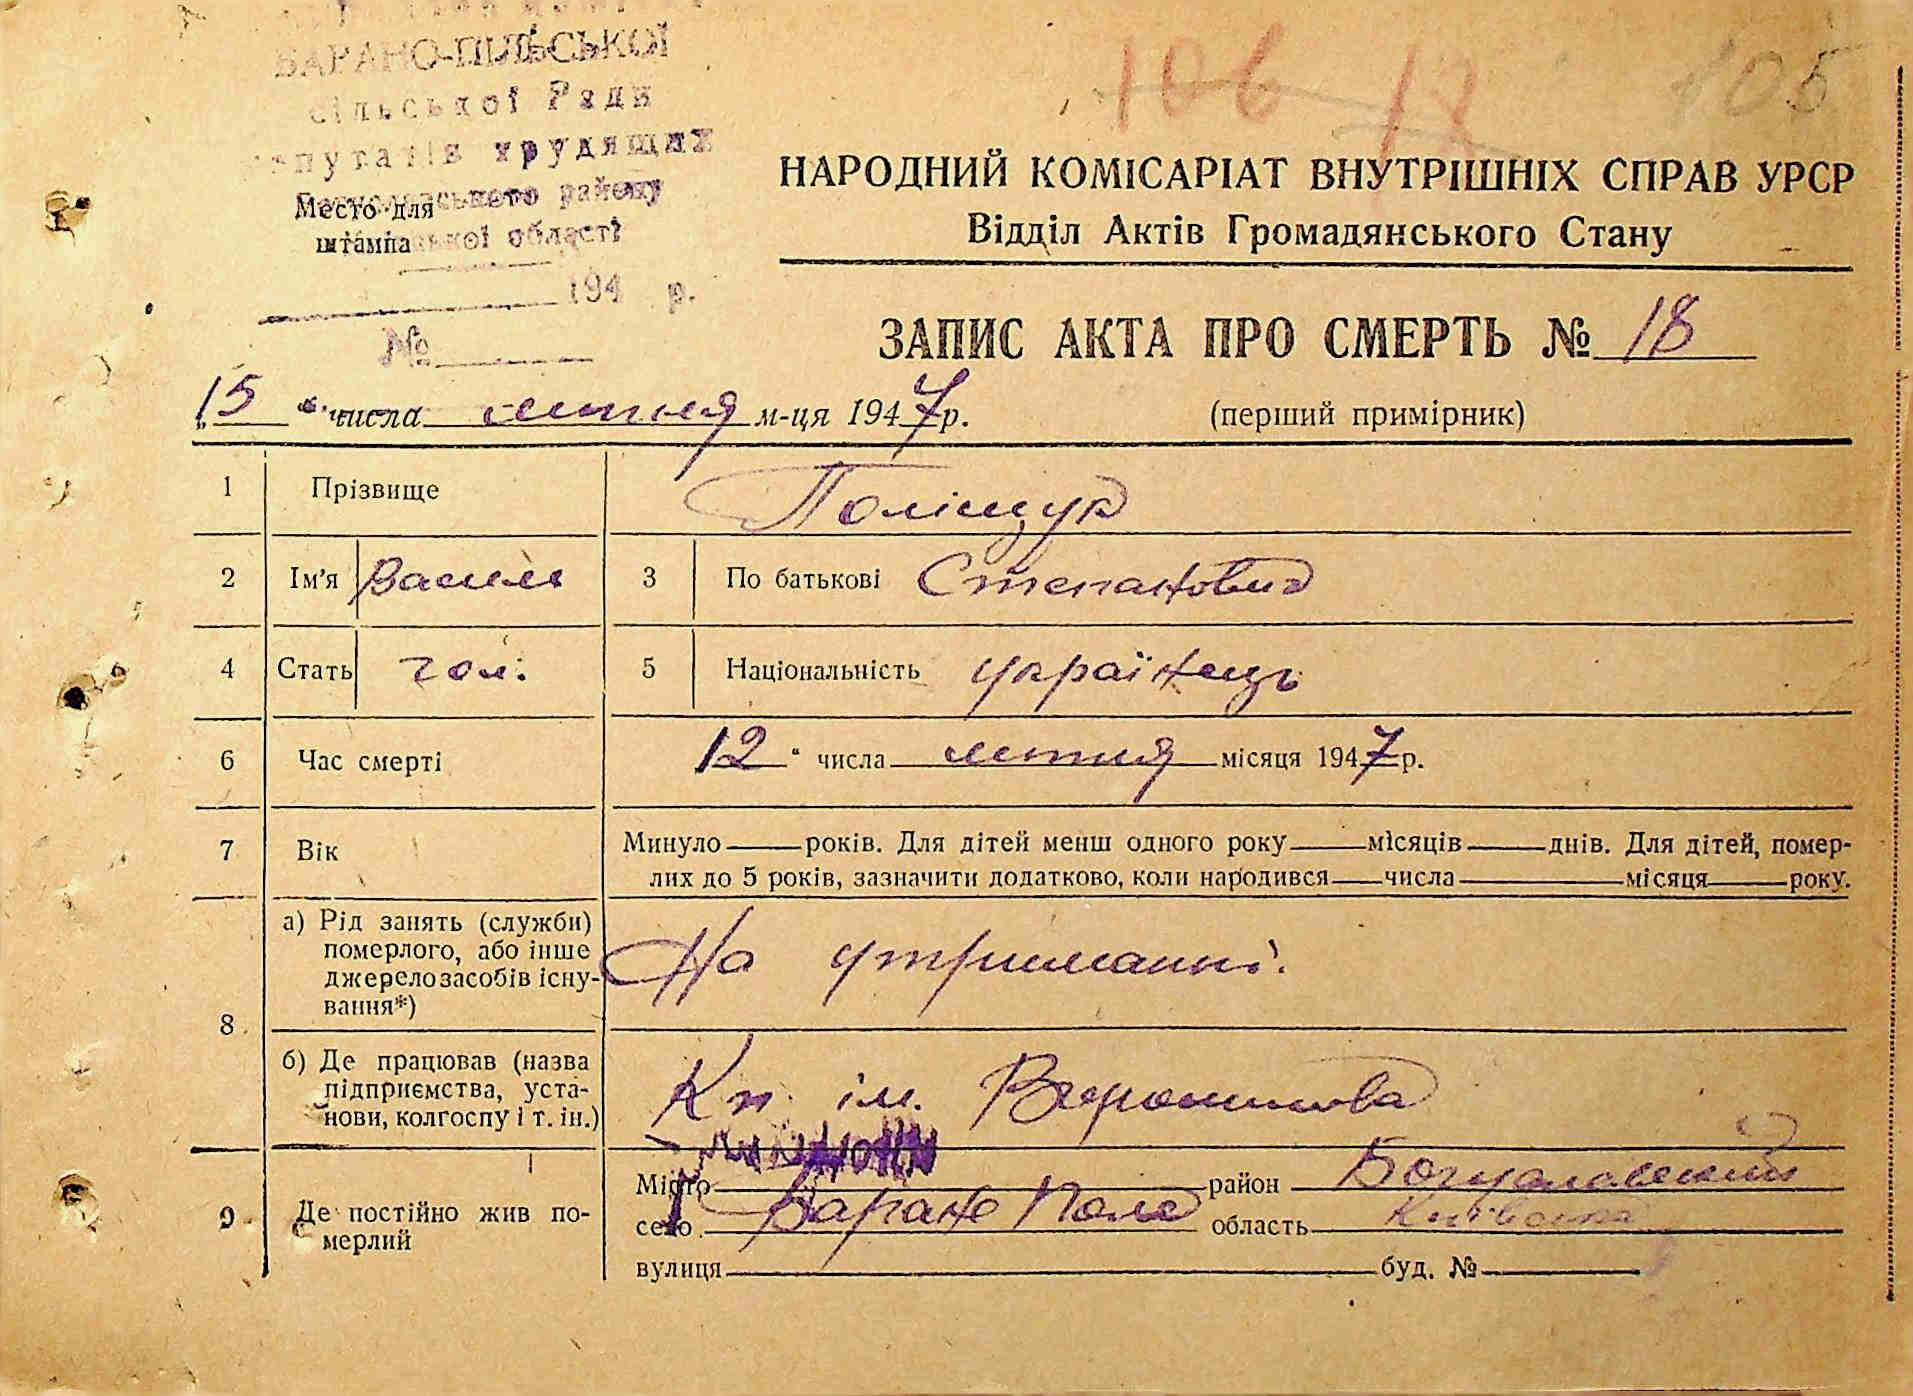 БАРАНО-ПІЛЬСЬКОЇ
сільської Ради
депутатів трудящих
району
області
Место для
штампа
194 р.
№
106 12 105
НАРОДНИЙ КОМІСАРІАТ ВНУТРІШНІХ СПРАВ УРСР
Відділ Актів Громадянського Стану
ЗАПИС АКТА ПРО СМЕРТЬ № 18
„15" числа лютня м-ця 1947р.
(перший примірник)
1 Прізвище Поліщук
2 Ім'я Василь 3 По батькові Степанович
4 Стать чол. 5 Національність українець
6 Час смерті 12" числа лютня місяця 1947р.
7 Вік Минуло років. Для дітей менш одного року місяців днів. Для дітей, помер-
лих до 5 років, зазначити додатково, коли народився числа місяця року.
8 а) Рід занять (служби)
померлого, або інше
джерело засобів існу-
вання*)
На утриманні.
б) Де працював (назва
підприємства, уста-
нови, колгоспу і т. ін.)
Кп ім. Ворошилова
9 Де постійно жив по-
мерлий
Місто район Богуславський
село Баране Поле область Київська
вулиця буд. №